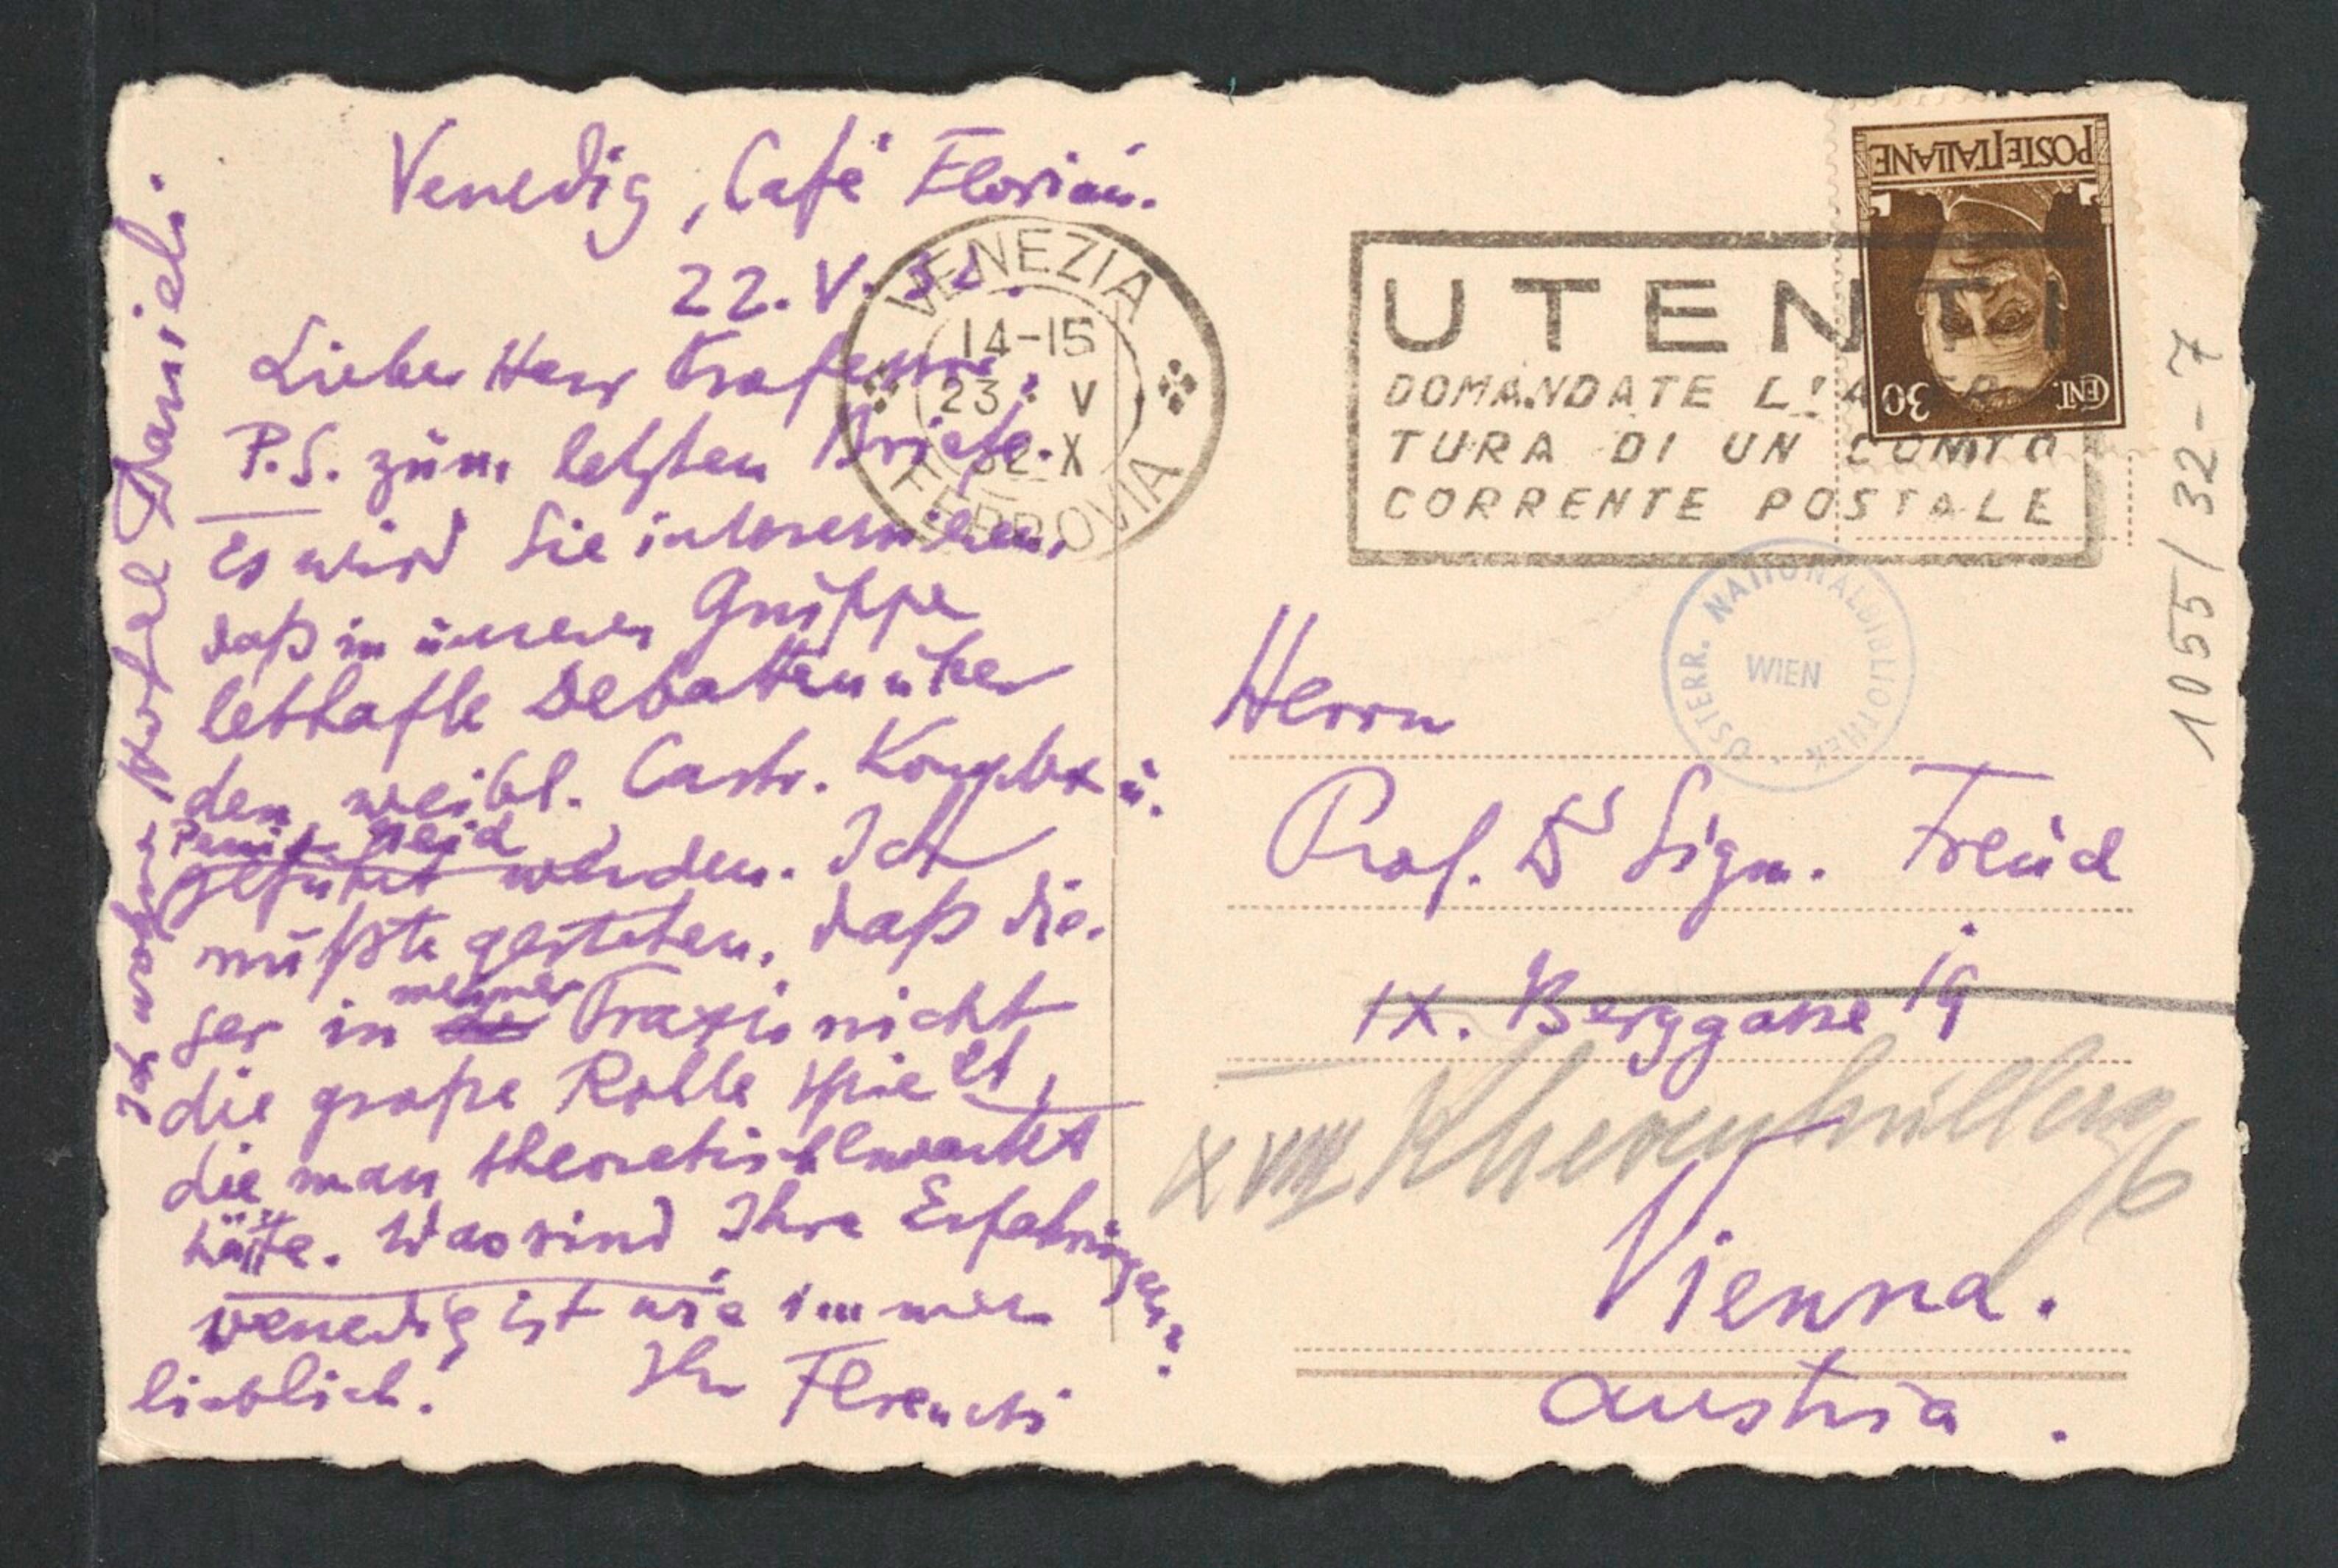 Venedig, Café Florian.
22.V.32.
Lieber Herr Professor,
P.S. zum letzten Briefe.
Es wird Sie interessieren,
daß in unserer Gruppe
lebhafte Debatten über
den weibl. Castr. Komplex u.
Penis-Neid
geführt werden. Ich
mußte gestehen, daß die-
ser in meiner Praxis nicht
die große Rolle spielt,
die man theoretisch erwartet
hätte. Was sind Ihre Erfahrungen?
Venedig ist wie immer
lieblich!
Ihr Ferenczi
Ich wohne Hotel Danieli.
VENEZIA
14-15
23 V
32-X
FERROVIA
UTENTI
DOMANDATE L'APER
TURA DI UN CONTO
CORRENTE POSTALE
POSTE ITALIANE
CENT. 30
1055/32-7
ÖSTERR. NATIONALBIBLIOTHEK
WIEN
Herrn
Prof. Dr Sigm. Freud
IX. Berggasse 19
XVIII Khevenhüllerg
6
Vienna.
Austria.